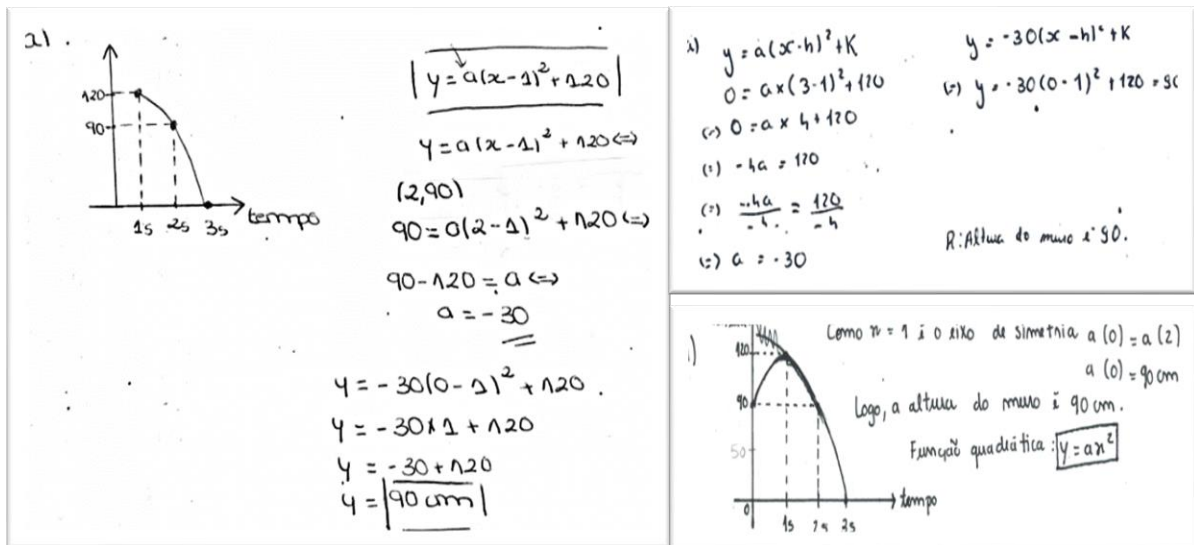 a).
120
90
1s 2s 3s tempo
y = a(x-1)² + 120
y = a(x-1)² + 120 (=)
(2,90)
90 = a(2-1)² + 120 (=)
90-120 = a (=)
a = -30
y = -30(0-1)² + 120.
y = -30×1 + 120
y = -30+120
y = 90 cm
y = a(x-h)² + K
0 = a×(3-1)² + 120
(=) 0 = a × 4 + 120
(=) -4a = 120
(=) -4a/-4 = 120/-4
(=) a = -30
y = -30(x-h)² + K
(=) y = -30(0-1)² + 120 = 90
R: Altura do muro é 90.
120
90
50
0
1s 2s 2s tempo
Como x = 1 é o eixo de simetria a(0) = a(2)
a(0) = 90cm
Logo, a altura do muro é 90 cm.
Função quadrática: y=ax²